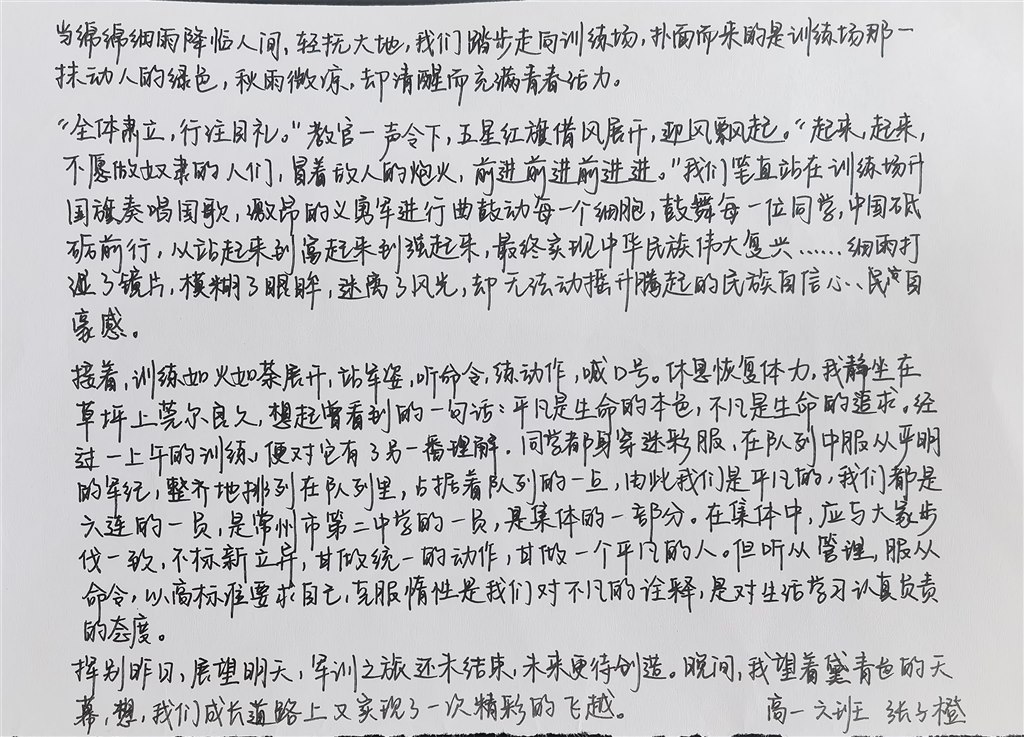 当绵绵细雨降临人间,轻抚大地,我们踏步走向训练场,扑面而来的是训练场那一
抹动人的绿色,秋雨微凉,却清醒而充满青春活力。
“全体肃立,行注目礼。”教官一声令下,五星红旗借风展开,迎风飘起。“起来,起来,
不愿做奴隶的人们,冒着敌人的炮火,前进前进前进进。”我们笔直站在训练场升
国旗奏唱国歌,激昂的义勇军进行曲鼓动每一个细胞,鼓舞每一位同学,中国砥
砺前行,从站起来到富起来到强起来,最终实现中华民族伟大复兴……细雨打
湿了镜片,模糊了眼眸,迷离了风光,却无法动摇升腾起的民族自信心、民族自
豪感。
接着,训练如火如荼展开,站军姿,听命令,练动作,喊口号。休息恢复体力,我静坐在
草坪上莞尔良久,想起曾看到的一句话:平凡是生命的本色,不凡是生命的追求。经
过一上午的训练,便对它有了另一番理解。同学都身穿迷彩服,在队列中服从严明
的军纪,整齐地排列在队列里,占据着队列的一点,由此我们是平凡的,我们都是
六连的一员,是常州市第二中学的一员,是集体的一部分。在集体中,应与大家步
伐一致,不标新立异,甘做统一的动作,甘做一个平凡的人。但听从管理,服从
命令,以高标准要求自己,克服惰性是我们对不凡的诠释,是对生活学习认真负责
的态度。
挥别昨日,展望明天,军训之旅还未结束,未来更待创造。晚间,我望着黛青色的天
幕,想,我们成长道路上又实现了一次精彩的飞越。 高一六班 张子橙